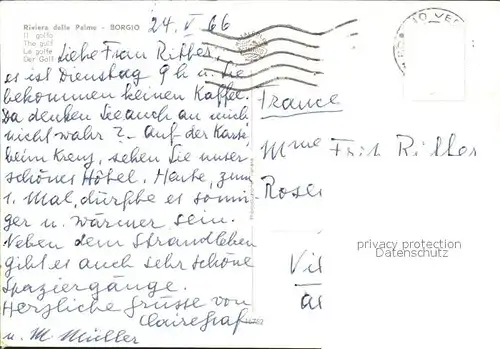 Riviera delle Palme - BORGIO
Il golfo
The gulf
Le golfe
Der Golf
24. V 66
Liebe Frau Ritter,
es ist Dienstag 9 h u. Sie
bekommen keinen Kaffee.
Da denken Sie auch an mich
nicht wahr? - Auf der Karte,
beim Kreuz, sehen Sie unser
schönes Hôtel. Heute, zum
1. Mal, dürfte es sonni-
ger u. wärmer sein.
Neben dem Strandleben
gibt es auch sehr schöne
Spaziergänge.
Herzliche Grüsse von
Claire Graf
u. M. Müller
France
Mme Ritter
Rose
privacy protection
Datenschutz